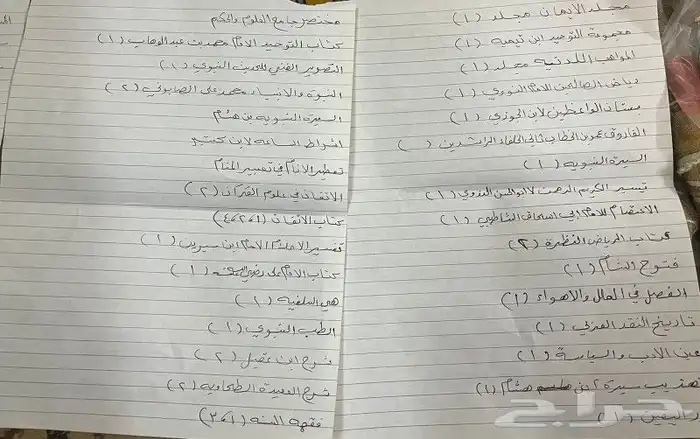 مجلد الايمان مجلد (١)
مجموعة التوحيد ابن تيمية (١)
المواهب اللدنية مجلد (١)
رياض الصالحين للامام النووي (١)
بستان الواعظين لابن الجوزي (١)
الفاروق عمر بن الخطاب ثاني الخلفاء الراشدين ( )
السيرة النبوية (١)
تيسير الكريم الرحمن (١)
الاعتصام للامام ابي اسحاق الشاطبي (١)
كتاب الرياض النظرة (٢)
فتوح الشام (١)
الفصل في الملل والاهواء (١)
تاريخ النقد العربي (١)
عين الادب والسياسة (١)
تهذيب سيرة ابن هشام (١)
مختصر جامع العلوم والحكم
كتاب التوحيد الامام محمد بن عبدالوهاب (١)
التصوير الفني للحديث النبوي (١)
النبوة والانبياء محمد علي الصابوني (٢)
السيرة النبوية بن هشام
اشراط الساعة لابن كثير
تعطير الانام في تفسير المنام
الاتقان في علوم القرآن (٢)
كتاب الاتقان (١،٢،٤)
تفسير الاحلام الامام ابن سيرين (١)
كتاب الامام علي رضي الله عنه (١)
هي السلفية (١)
الطب النبوي (١)
شرح ابن عقيل (٢)
شرح العقيدة الطحاويه (٢)
فقه السنه (١،٣)
حراج